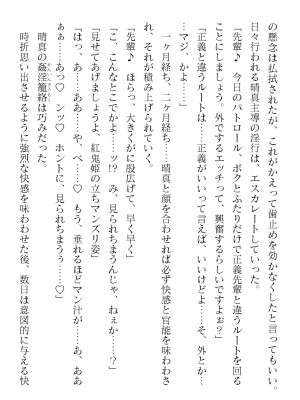 の懸念は払拭されたが、これがかえって歯止めを効かなくしたと言ってもいい。
日々行われる晴真主導の淫行は、エスカレートしていった。
「先輩♪　今日のパトロール、ボクとふたりだけで正義先輩と違うルートを回る
ことにしましょう。外でするエッチって、興奮するらしいですよぉ？」
「正義と違うルートは……正義がいいって言えば、いいけどよ……そ、外とか…
…マジ、かよ……」
一ヶ月経ち、二ヶ月経ち……晴真と顔を合わせれば必ず快感と官能を味わわさ
れ、それが積み上げられていく。
「先輩♪　ほらっ、大きくがに股広げて、早く早く」
「こ、こんなとこでかよ…ッ!?　み、見られちまうんじゃ、ねぇか……？」
「見せてあげましょうよ、紅鬼姫の立ちマンズリ姿」
「はっ、あ……ああ……や、べ……♡　もう、垂れるほどマン汁が……あ、ああ
ぁぁ……あっ♡　ンッ♡　ホントに、見られちまうぅ……♡」
晴真の姦淫籠絡は巧みだった。
時折思い出させるように強烈な快感を味わわせた後、数日は意図的に与える快